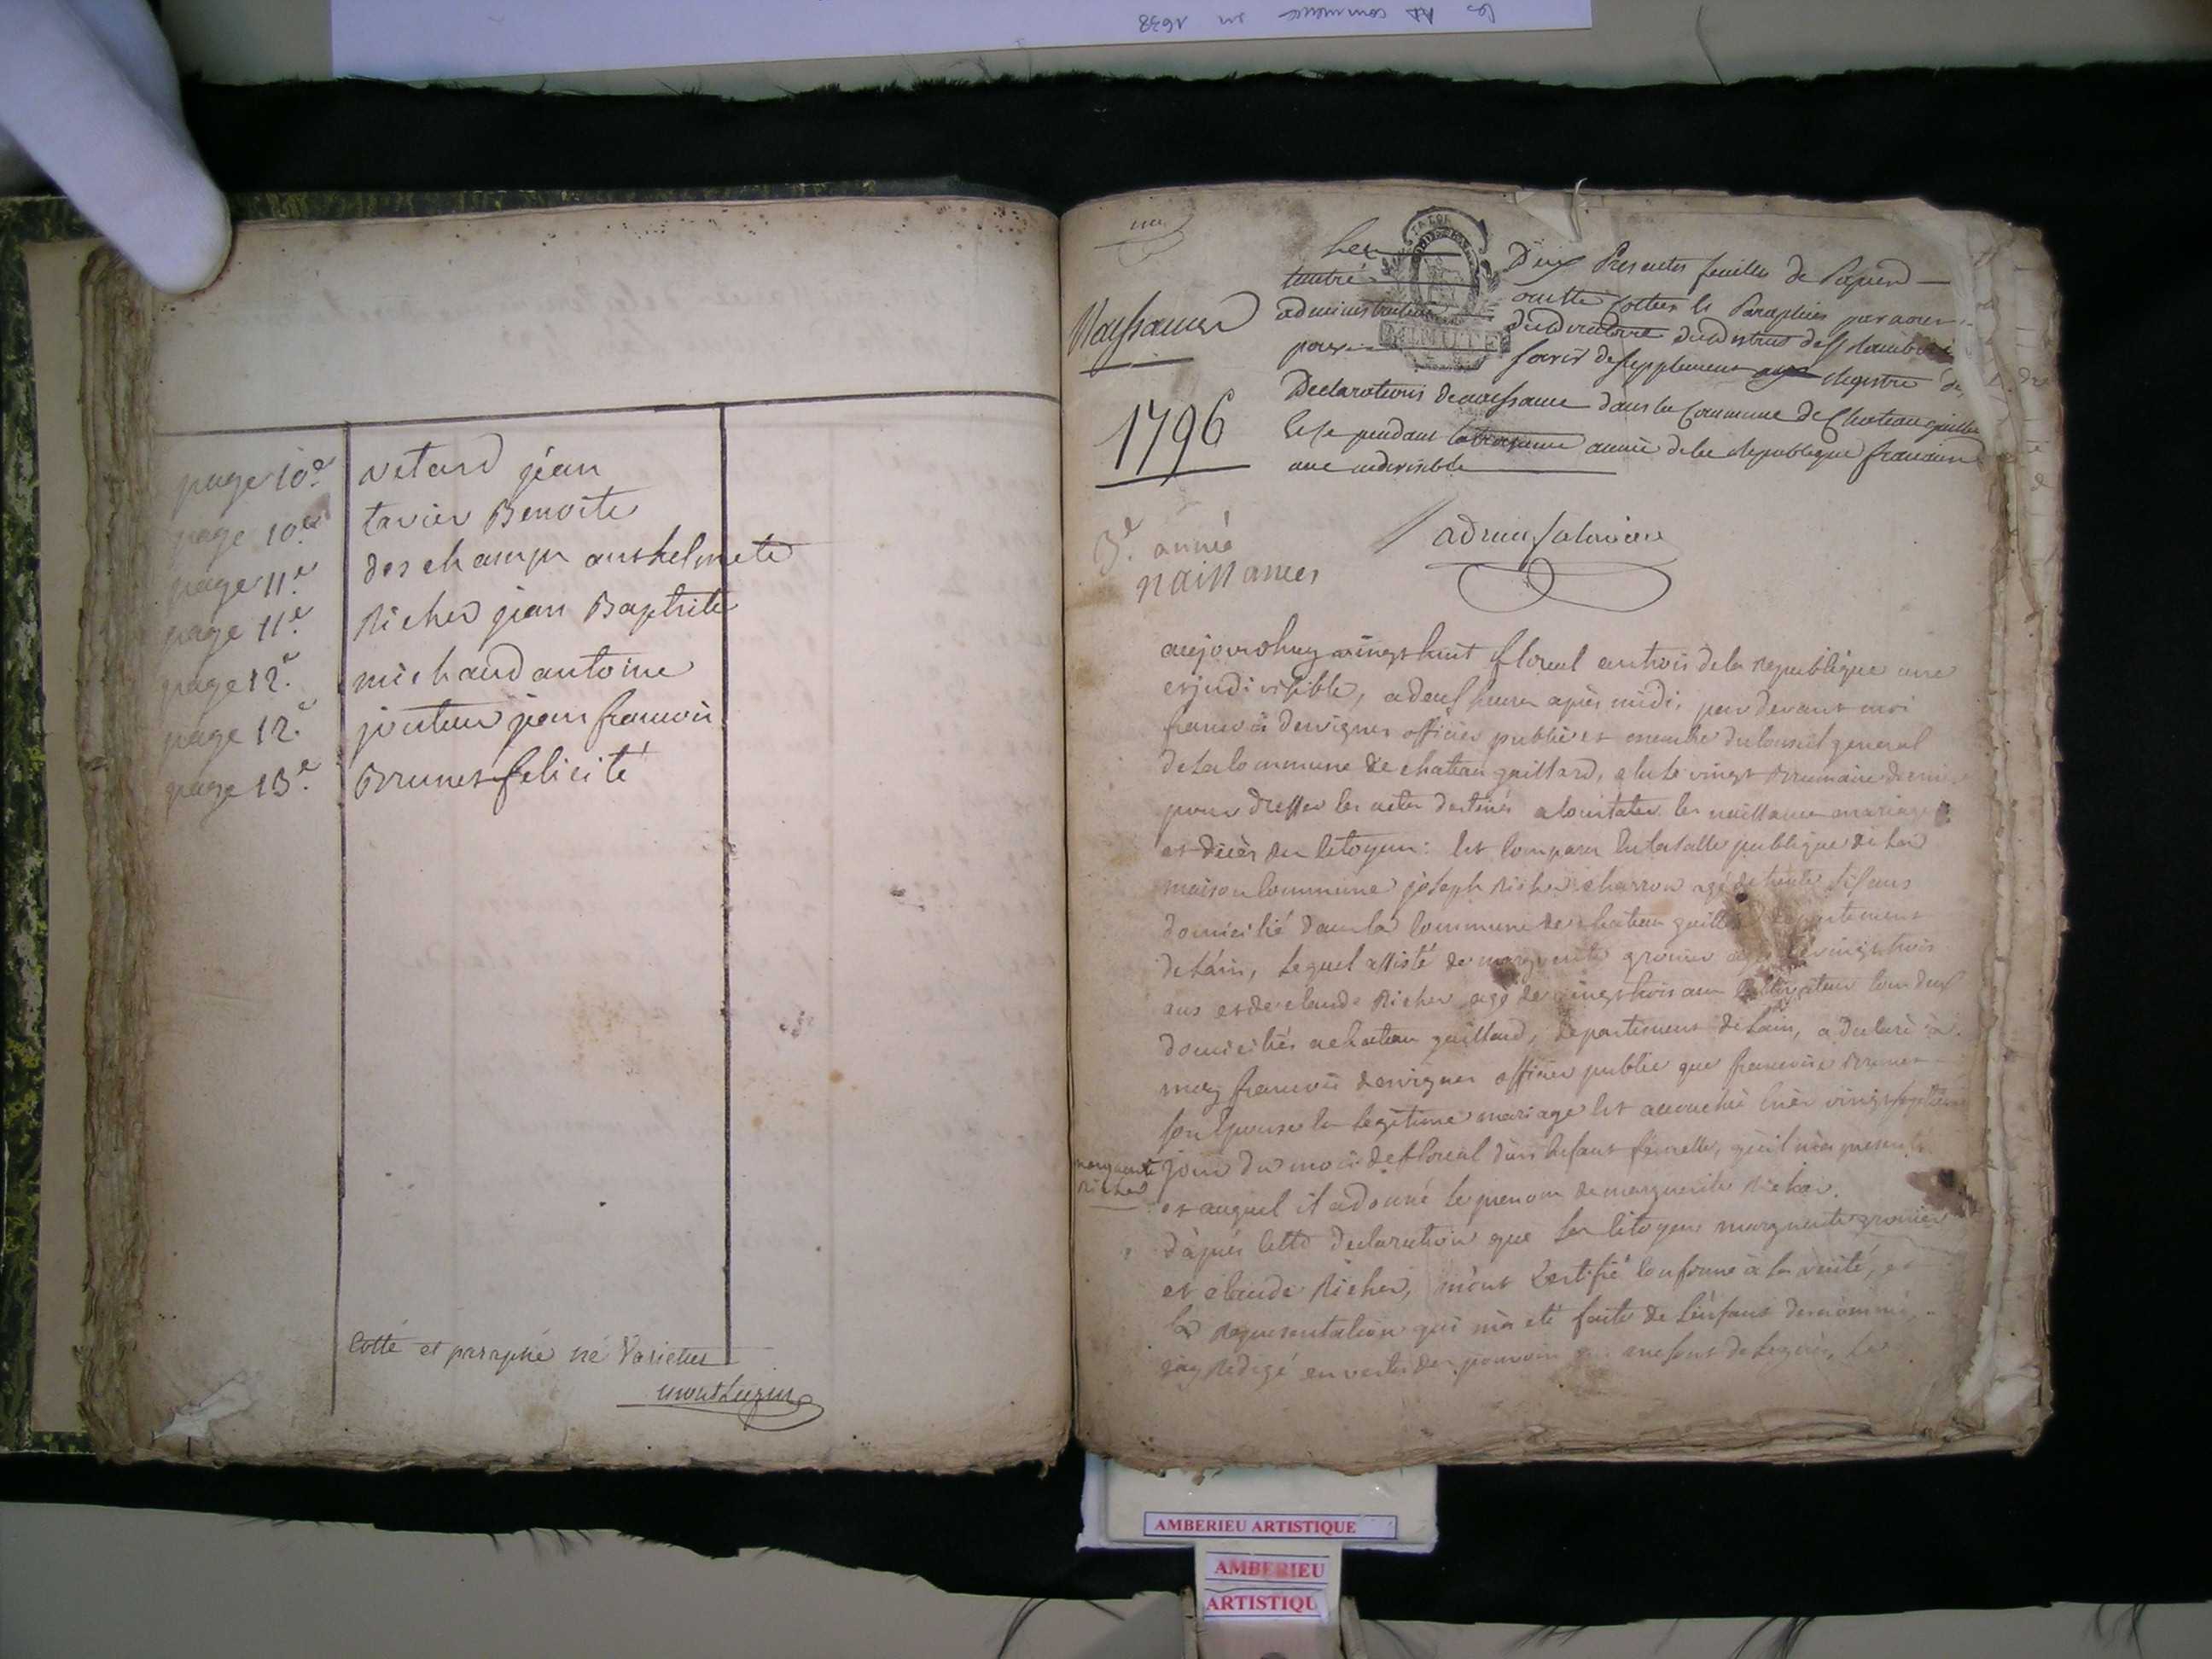 les commence en 1638
page 10.e vetard jean
page 10.e tavier Benoite
page 11.e deschamps anthelmete
page 11.e Richer jean Baptiste
page 12.e michaud antoine
page 12.e jean francois
page 13.e Brunet felicité
Cotté et paraphé né Varietur
montluzin
Naissances
1796
MINUTE
Les Dix Presentes feuilles de Papier
timbré cottées et Paraphées par nous
administrateur du directoire du district de
pour servir de supplement registre de
Declarations de naissance dans la Commune de Chateau gaillard
pendant la troisieme année de la republique francaise
une indivisible
3.e année
naissances
aujourdhuy vingt huit floreal an trois de la republique une
et indivisible, a deux heures après midi, par devant moi
francois desvignes officier public et membre du Conseil general
de la Commune de chateau gaillard, elu le vingt Brumaire dernier
pour dresser les actes destinés a Constater les naissances mariages
et décès des Citoyens: Est Comparu En la salle publique de la
maison Commune joseph Richer charron agé de trente ans
domicilié dans la Commune de chateau gaillard departement
de Lain, Lequel assisté de marguerite grenier agée de vingt trois
ans et de claude Richer agé de vingt trois ans Cultivateur tous deux
domiciliés a chateau gaillard, departement de Lain, a declaré à
moy francois desvignes officier public que francoise Brunet
son Epouse En Legitime mariage Est accouchée hier vingt septieme
jour du mois de floreal d'un Enfant femelle, qu'il m'a presenté
marguerite
Richer
et auquel il a donné le prenom de marguerite Richer.
d'après Cette declaration que les Citoyens marguerite grenier
et claude Richer, m'ont Certifié Conforme à la vérité, et
la representation qui m'a été faite de L'enfant denommé,
j'ay Redigé en vertu des pouvoirs qui me sont delegués, Le
AMBERIEU ARTISTIQUE
AMBERIEU
ARTISTIQU